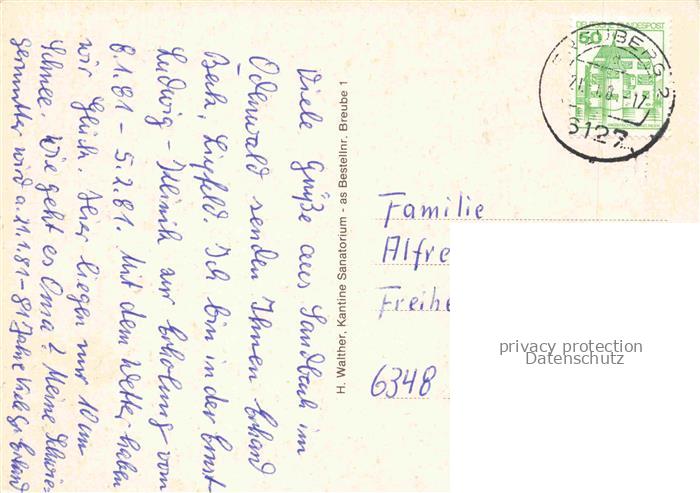 Viele Grüße aus Sandbach im
Odenwald senden Ihnen Erhard
Beh, Lißfeld. Ich bin in der Ernst-
Ludwig-Klinik zur Erholung vom
8.1.81 - 5.2.81. Mit dem Wetter haben
wir Glück. Hier liegen nur 10 cm
Schnee. Wie geht es Oma? Meine Schwie-
germutter wird a. 21.1.81 - 81 Jahre Viele Gr. Erhard
H. Walther, Kantine Sanatorium - as Bestellnr. Breube 1
DEUTSCHE BUNDESPOST
50
BERG 2
6127
Familie
Alfre
Freihe
6348
privacy protection
Datenschutz